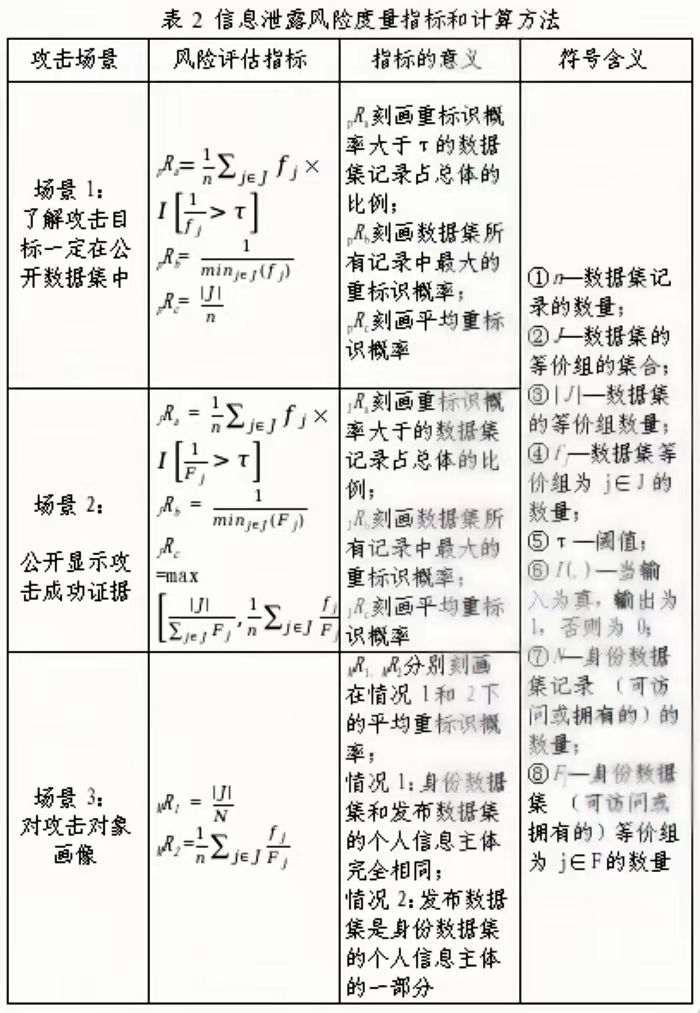 表 2 信息泄露风险度量指标和计算方法
攻击场景
风险评估指标
指标的意义
符号含义
场景 1：
了解攻击目
标一定在公
开数据集中
pRa= 1/n ∑j∈J fj ×
I [1/fj > τ]
pRb= 1/minj∈J(fj)
pRc= |J|/n
pRa刻画重标识概
率大于 τ 的数据
集记录占总体的
比例；
pRb刻画数据集所
有记录中最大的
重标识概率；
pRc刻画平均重标
识概率
场景 2：
公开显示攻
击成功证据
JRa = 1/n ∑j∈J fj ×
I [1/Fj > τ]
JRb = 1/minj∈J(Fj)
JRc
=max
[|J|/∑j∈J Fj , 1/n ∑j∈J fj/Fj
JRa刻画重标识概
率大于的数据集
记录占总体的比
例；
JRb刻画数据集所
有记录中最大的
重标识概率；
JRc刻画平均重标
识概率
场景 3：
对攻击对象
画像
MR1 = |J|/N
MR2=1/n ∑j∈J fj/Fj
MR1、MR2分别刻画
在情况 1 和 2 下
的平均重标识概
率；
情况 1：身份数据
集和发布数据集
的个人信息主体
完全相同；
情况 2：发布数据
集是身份数据集
的个人信息主体
的一部分
①n—数据集记
录的数量；
②J—数据集的
等价组的集合；
③|J|—数据集
的等价组数量；
④fj—数据集等
价组为 j∈J 的
数量；
⑤τ—阈值；
⑥I(.)—当输
入为真，输出为
1，否则为 0；
⑦N—身份数据
集记录 （可访
问或拥有的）的
数量；
⑧Fj—身份数据
集 （可访问或
拥有的）等价组
为 j∈F的数量